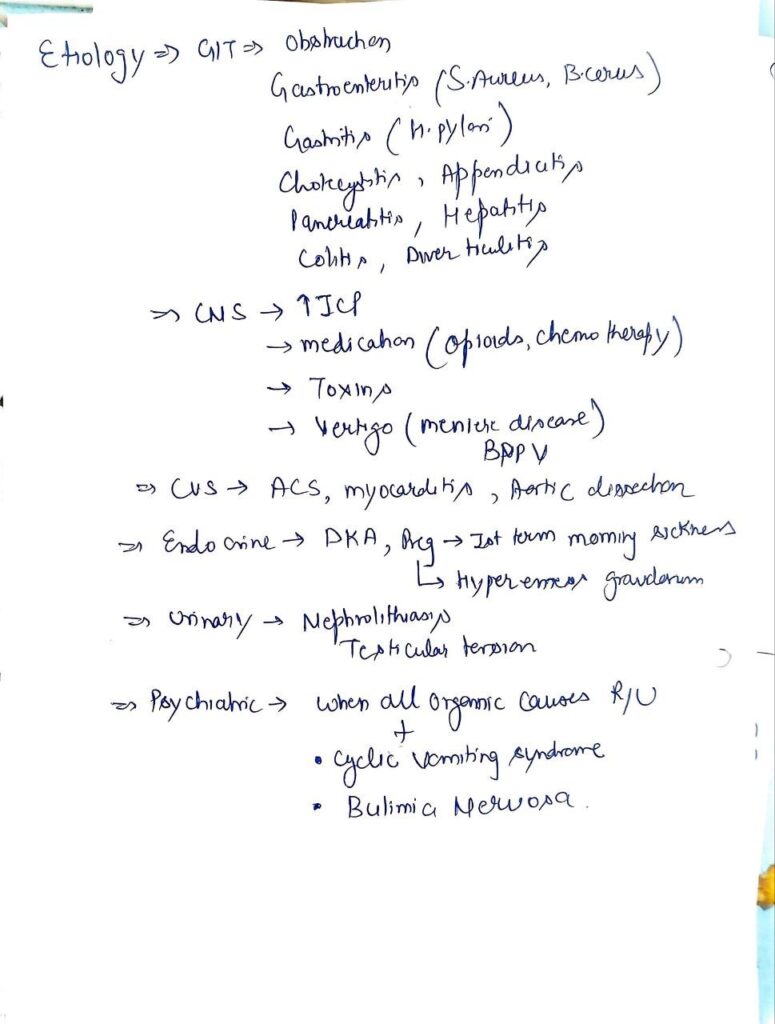 Etiology ⇒ GIT ⇒ Obstruction
Gastroenteritis (S.Aureus, B.cerus)
Gastritis (H.pylori)
Cholecystitis, Appendicitis
Pancreatitis, Hepatitis
Colitis, Diverticulitis
⇒ CNS → ↑ICP
→ medication (opioids, chemotherapy)
→ Toxins
→ Vertigo (meniere disease)
BPPV
⇒ CVS → ACS, myocarditis, Aortic dissection
⇒ Endocrine → DKA, Preg → Ist term morning sickness
↳ Hyperemesis gravidarum
⇒ Urinary → Nephrolithiasis
Testicular torsion
⇒ Psychiatric → when all organic causes R/U
+
• Cyclic vomiting syndrome
• Bulimia Nervosa.